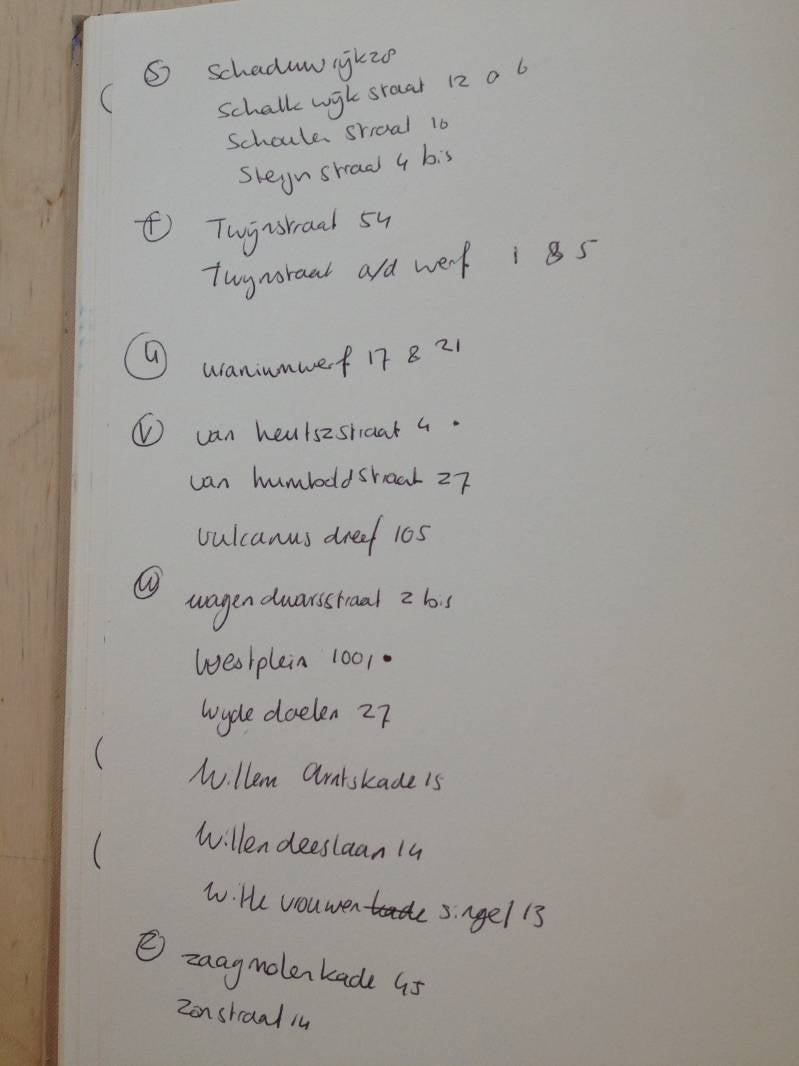 S Schaduwrijk 28
Schalkwijkstraat 12 a 6
Schoutenstraat 10
Steijnstraat 4 bis
T Twijnstraat 54
Twijnstraat a/d werf 1 & 5
U Uraniumwerf 17 & 21
V van heutszstraat 4 .
van humboldstraat 27
vulcanus dreef 105
W wagendwarsstraat 2 bis
Westplein 1001 .
Wyde doelen 27
Willem Arntskade 15
Willem deeslaan 14
Witte vrouwen kade singel 13
Z zaagmolenkade 45
Zonstraat 14